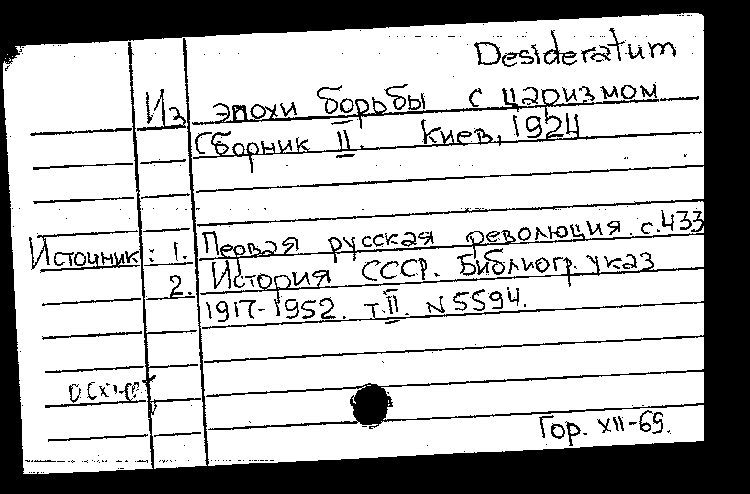 Desideratum
Из эпохи борьбы с царизмом
Сборник II. Киев, 1924
Источник: 1. Первая русская революция с.433
2. История СССР. Библиогр. указ
1917-1952. т.II. N 5594.
Гор. XII-69.